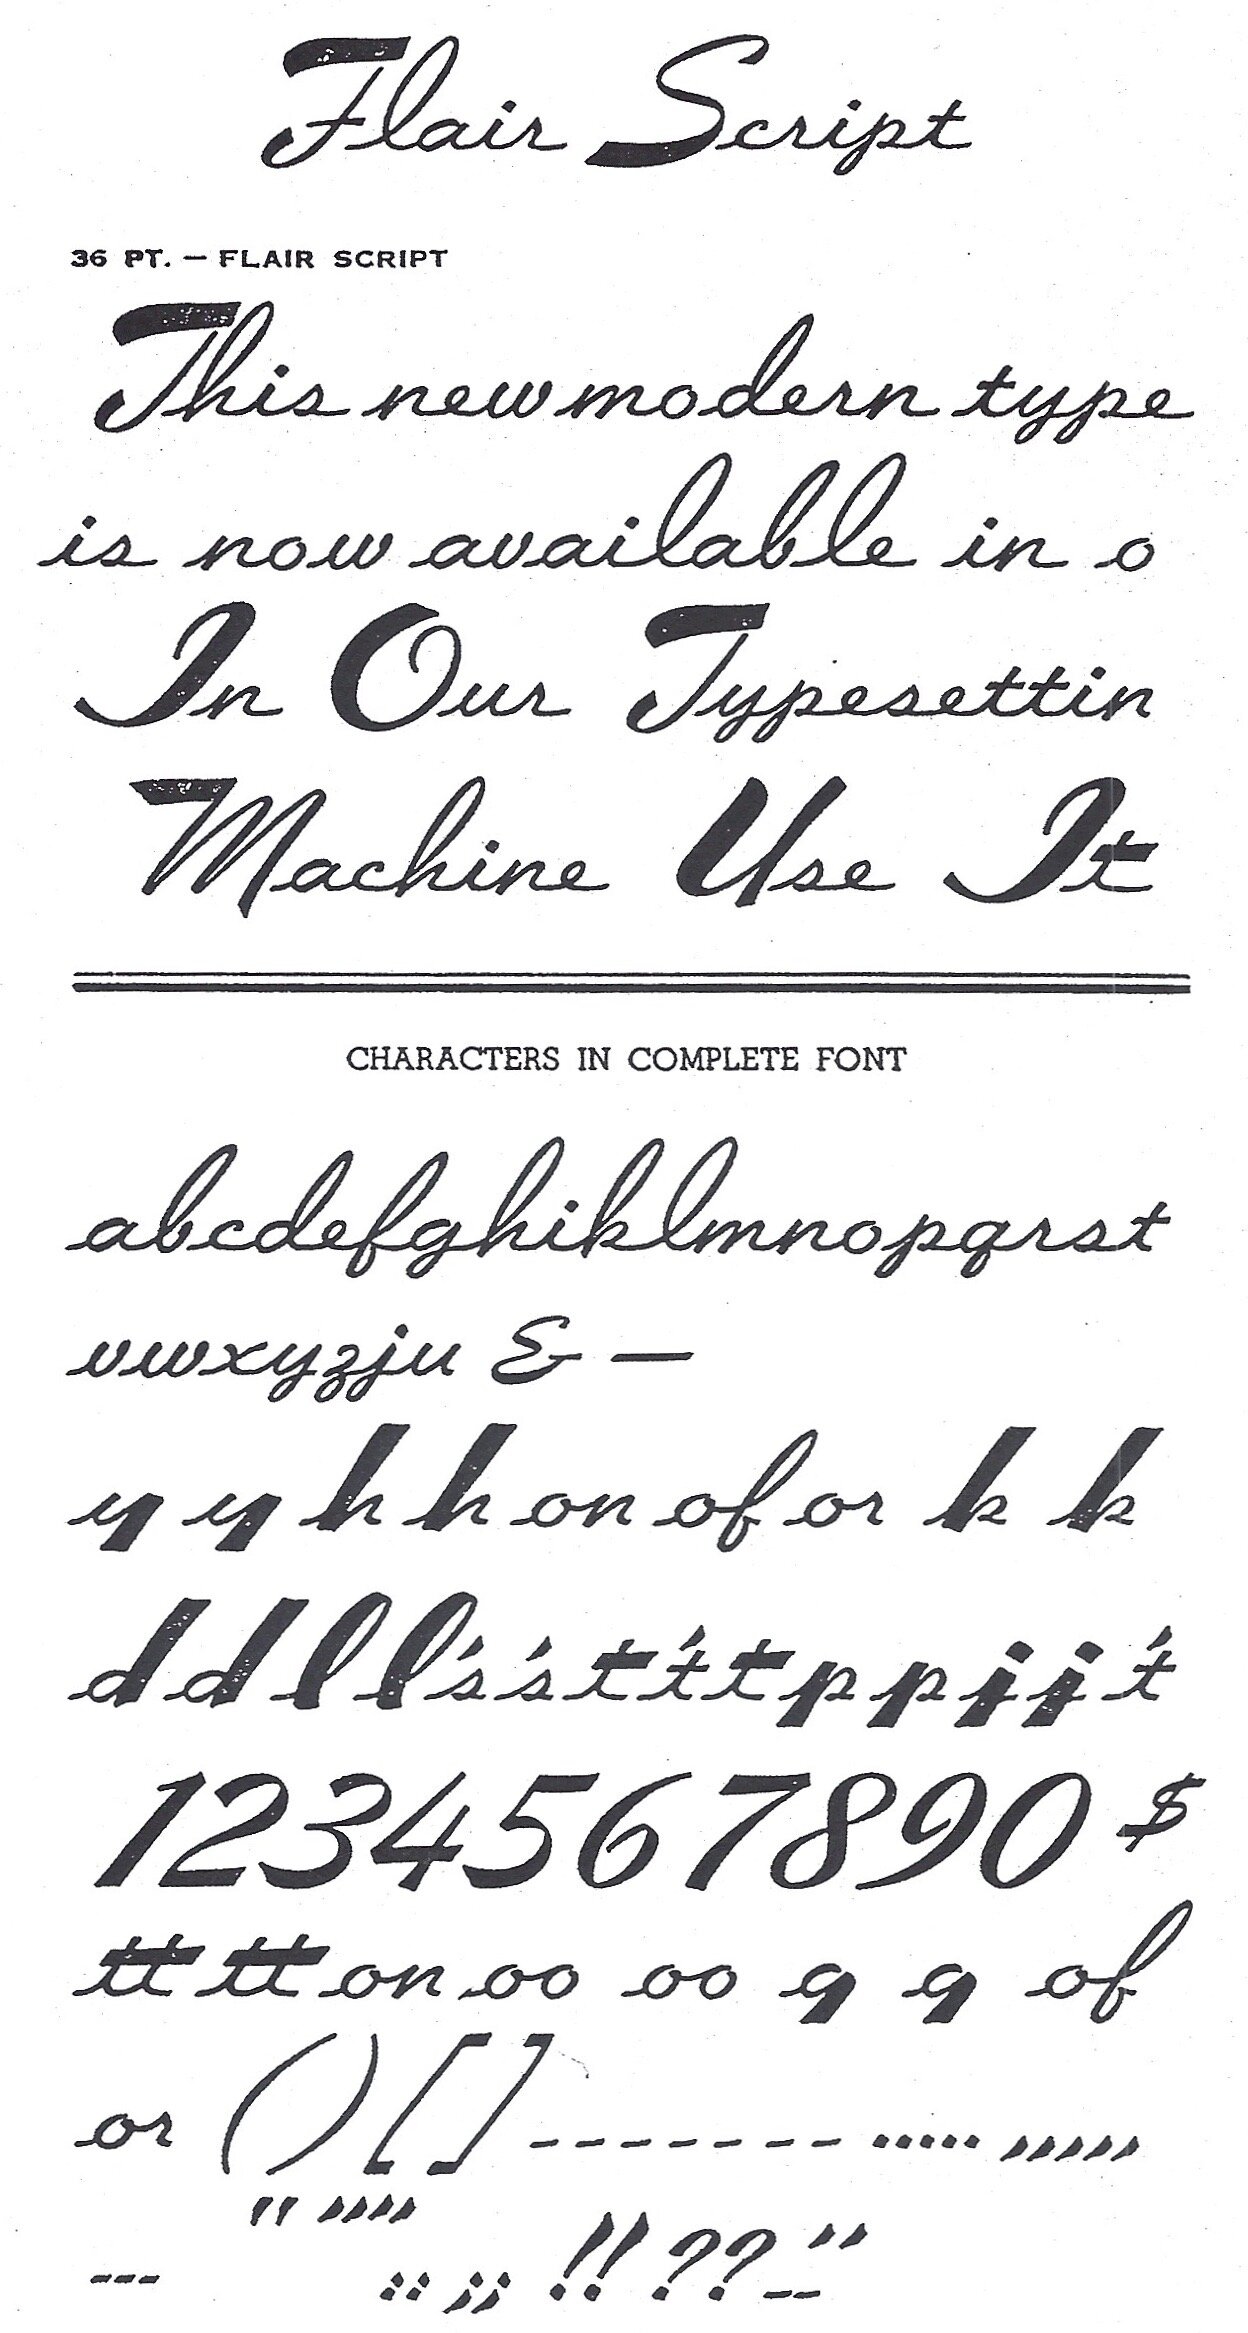 Flair Script
36 PT. — FLAIR SCRIPT
This new modern type
is now available in o
In Our Typesettin
Machine Use It
CHARACTERS IN COMPLETE FONT
abcdefghiklmnopqrst
vwxyzju & —
y y h h on of or k k
d d l l 's 's t 't t p p j j 't
1234567890 $
tt tt on oo oo g g of
or ( ) [ ] - - - - - - - - . . . . . , , , , ,
" ’’’’
--- : : ; ; !! ?? -- ’’